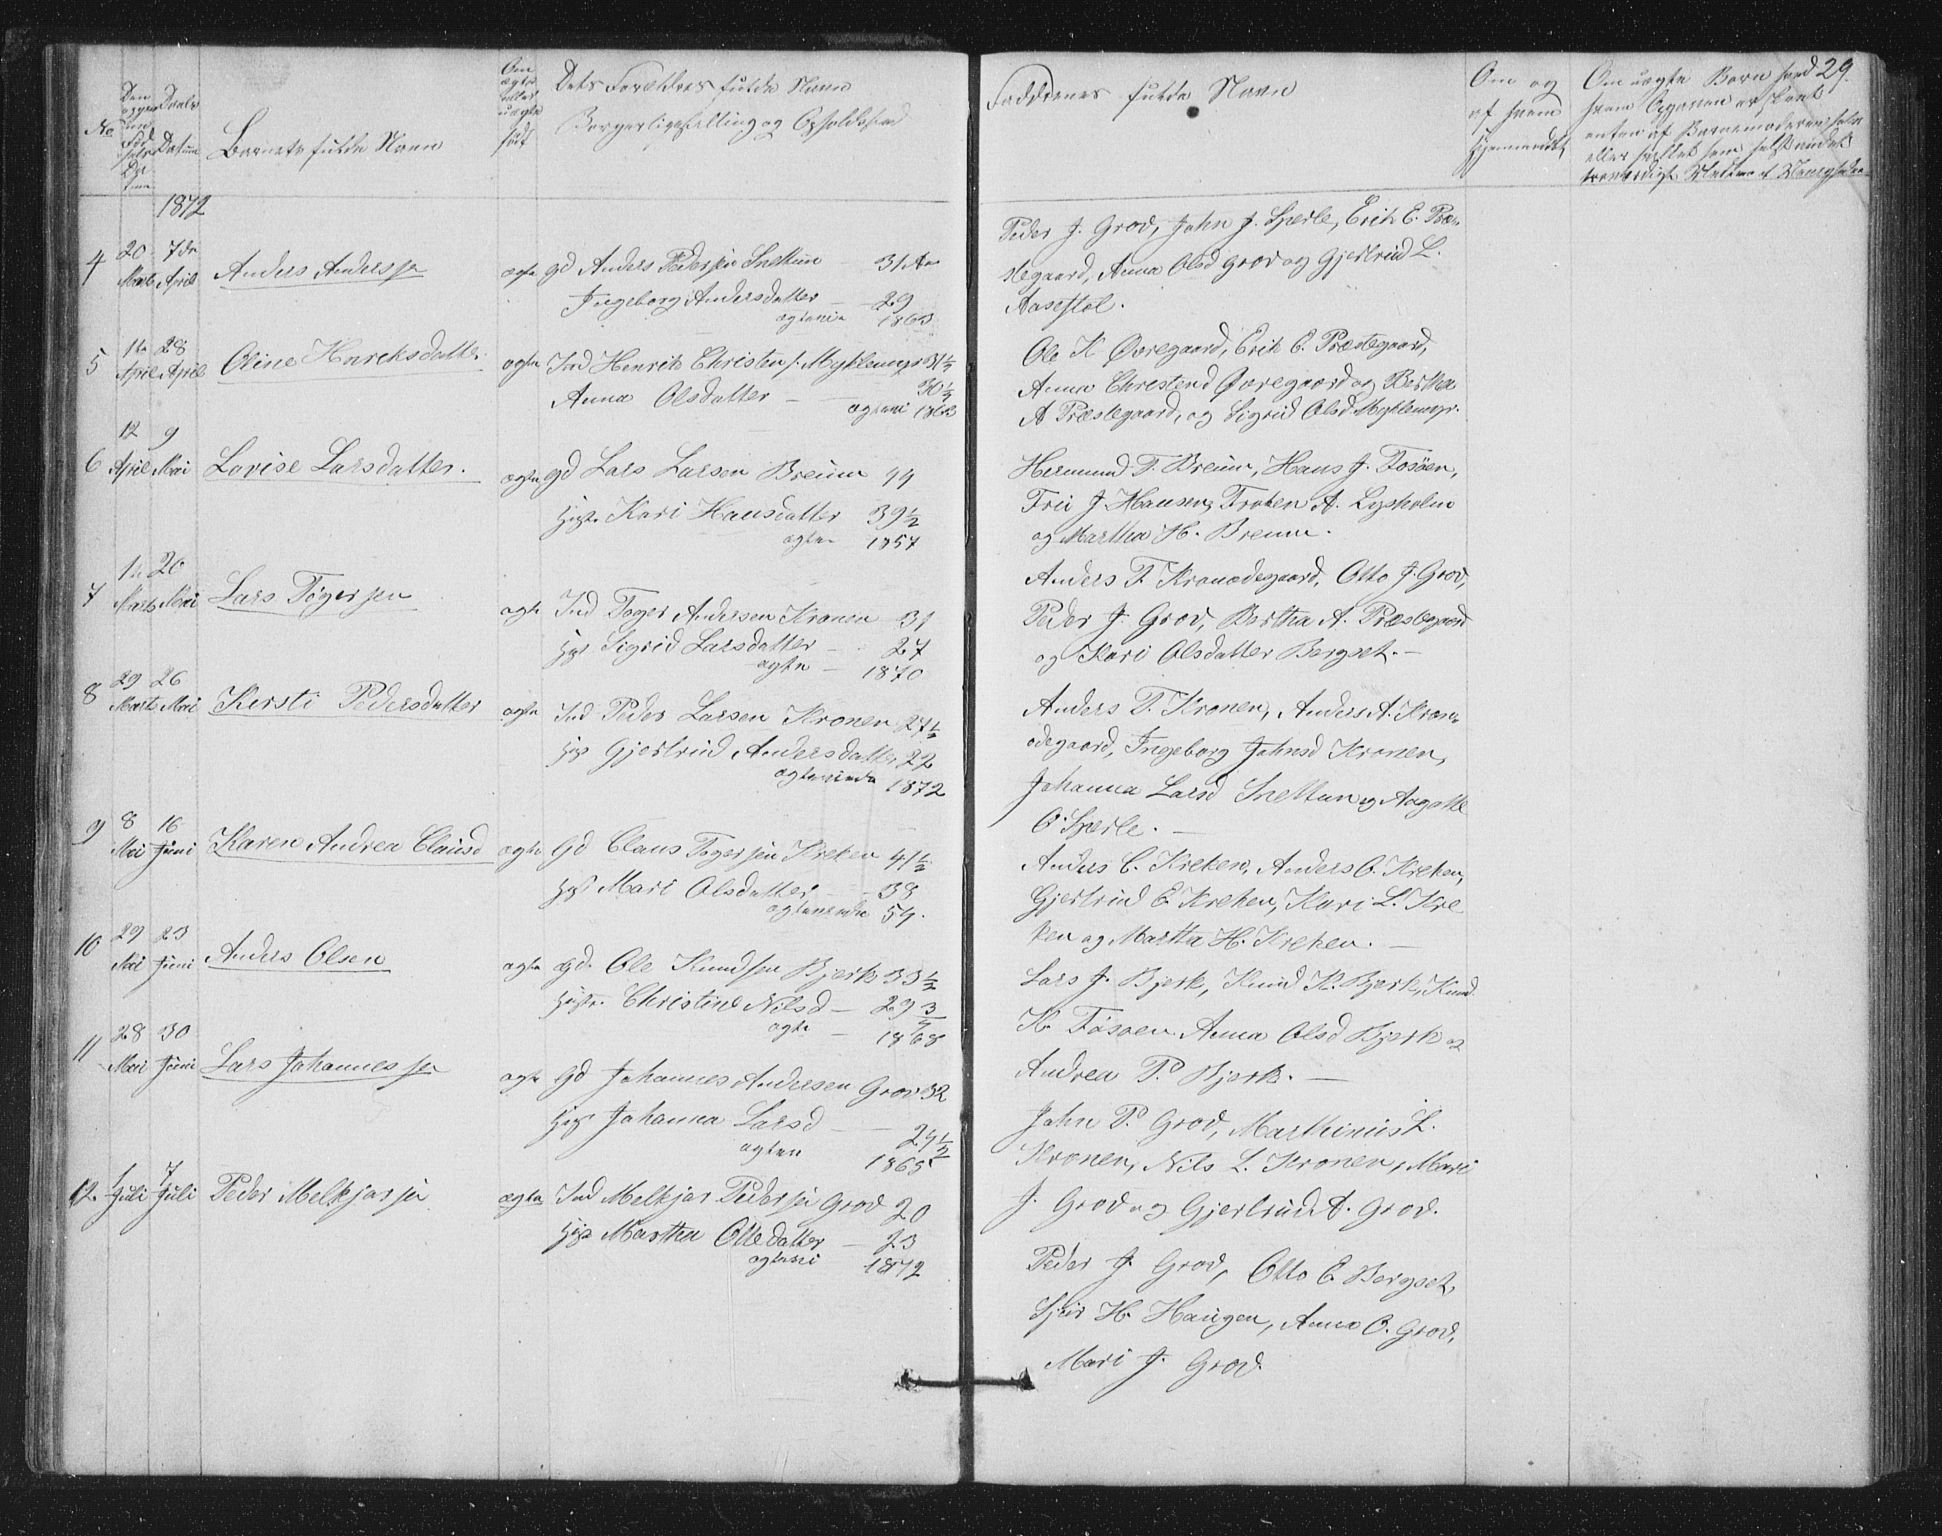 29.
No
Daabs
Datum
Barnets fulde Navn
Om
ægte
eller
uægte
født
Dets Forældres fulde Navn
Borgerlige Stilling og Opholdssted
Faddernes fulde Navn
Om og
af hvem
hjemmedøbt
Om uægte Børn
1872
4
20 Marts
7de April
Anders Anderssen
ægte
Gd Anders Pedersen Snetun 31 Aar
Ingeborg Andersdatter — 29
ægtevi 1863
Peder J. Grov, John J. Sperle, Erik E. Præ-
stegaard, Anna Olsd Grov og Gjertrud L.
Aasestøl.
5
April
28 April
Oline Henriksdatter
ægte
Ind Henrik Christens. Myklemyr 31½
Anna Olsdatter — 30½
ægtevi
Ole K Øvregaard, Erik E. Præstegaard,
Anna Christend Øvregaard og Bertha
A Præstegaard, og Sigrid Olsd Myklemyr.
6
12 April
9 Mai
Lovise Larsdatter.
ægte
Gd Lars Larsen Breum 44
Hust. Kari Hansdatter 39½
ægtev 1857
Hermund T. Breum, Hans J. Fosøen,
J. Hansen, A. Lysholm
og Martha H. Breum.
7
Marts
20 Mai
Lars Tøgersen
ægte
Ind Tøger Andersen Kronen 31
Hust Sigrid Larsdatter — 27
ægtev — 1870
Anders T. Kronødegaard, Otto J. Grov,
Peder J. Grov, Bertha A. Præstegaard
og Kari Olsdatter Bergset. —
8
29 Marts
26 Mai
Kersti Pedersdatter
ægte
Ind Peder Larsen Kronen 27½
Hust Gjertrud Andersdatter 22
ægteviede 1872
Anders T. Kronen, Anders A. Kron-
ødegaard, Ingeborg Johnsd Kronen,
Johanna Larsd Snettun og Aagatte
O Sperle. —
9
8 Mai
16 Juni
Karen Andrea Clausd
ægte
Gd Claus Tøgersen Kreken 41½
Hust Mari Olsdatter — 38
ægteviede 54.
Anders C. Kreken, Anders O. Kreken,
Gjertrud E. Kreken, Kari L. Kre
ken og Martha H. Kreken. —
10
29 Mai
23 Juni
Anders Olsen
ægte
Gd. Ole Knudsen Bjerk 33½
Hustr. Christine Nilsd — 29¾
ægte — 1868
Lars J. Bjerk, Knud K. Bjerk, Knud
K. Føsøen. Anna Olsd Bjerk og
Andrea P. Bjerk. —
11
28 Mai
30 Juni
Lars Johannessen
ægte
Gd Johannes Andersen Grov 32
Hust Johanna Larsd — 24½
ægtev 1865
John P. Grov, Marthinus L.
Kronen, Nils L. Kronen, Mari
J. Grov og Gjertrud A. Grov.
12.
1 Juli
7 Juli
Peder Melkjorsen
ægte
Ind Melkjor Pedersen Grov 20
Hust Martha Ottedatter — 23
ægtevi 1872
Peder J. Grov, Otto E Bergset,
H. Haugen, Anna O. Grov,
Mari J. Grov.